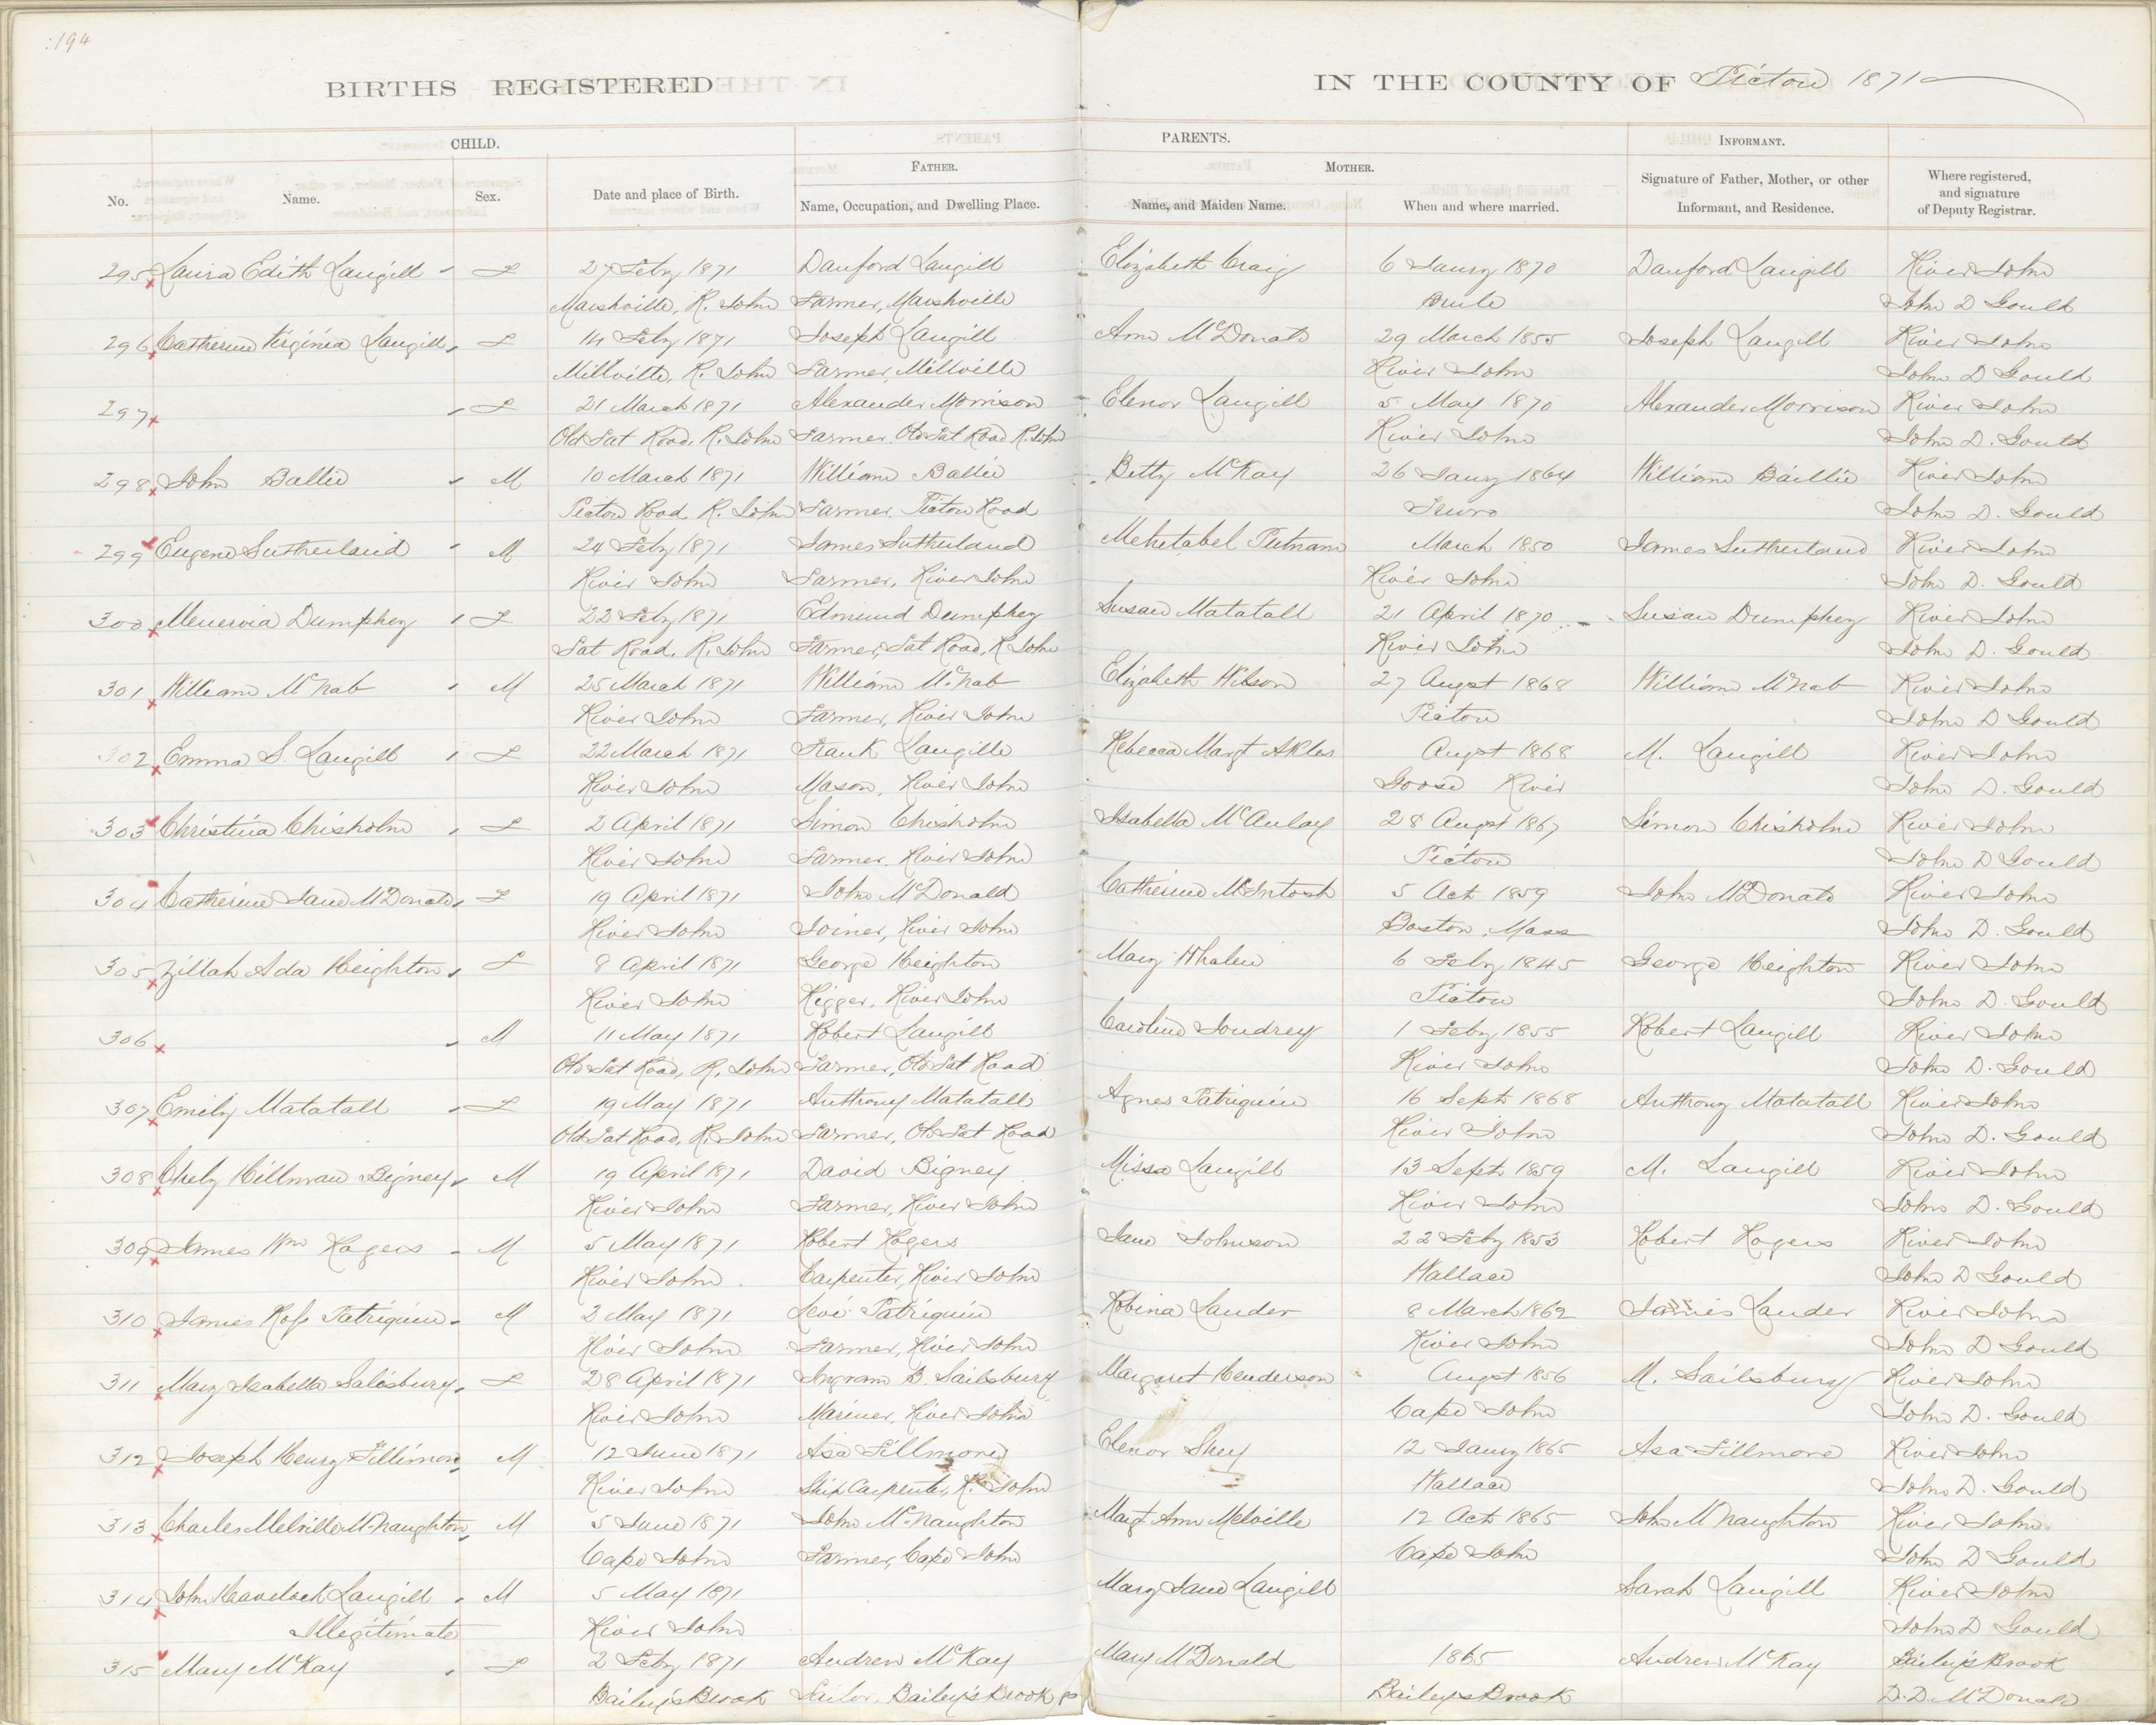 194
BIRTHS REGISTERED IN THE COUNTY OF Pictou 1871
CHILD. PARENTS. INFORMANT.
FATHER. MOTHER.
No. Name. Sex. Date and place of Birth. Name, Occupation, and Dwelling Place. Name, and Maiden Name. When and where married. Signature of Father, Mother, or other Informant, and Residence. Where registered, and signature of Deputy Registrar.
295 Laura Edith Langill F 27 Feby 1871 Danford Langill Elizabeth Craig 6 Jany 1870 Danford Langill River John
Marshville, R. John Farmer, Marshville Brule John D Gould
296 Catherine Virginia Langill F 14 Feby 1871 Joseph Langill Ann McDonald 29 March 1855 Joseph Langill River John
Millville, R. John Farmer, Millville River John John D Gould
297 F 21 March 1871 Alexander Morrison Elenor Langill 5 May 1870 Alexander Morrison River John
Old Tat Road, R. John Farmer, Old Tat Road R. John River John John D. Gould
298 John Ballie M 10 March 1871 William Ballie Betty McKay 26 Jany 1864 William Baillie River John
Pictou Road R. John Farmer, Pictou Road Truro John D. Gould
299 Eugene Sutherland M 24 Feby 1871 James Sutherland Mehetabel Putnam March 1850 James Sutherland River John
River John Farmer, River John River John John D. Gould
300 Menervia Dumphey F 22 Feby 1871 Edmund Dumphey Susan Matatall 21 April 1870 Susan Dumphey River John
Tat Road, R. John Farmer, Tat Road, R John River John John D. Gould
301 William McNab M 25 March 1871 William McNab Elizabeth Wilson 27 Augst 1868 William McNab River John
River John Farmer, River John Pictou John D Gould
302 Emma S. Langill F 22 March 1871 Frank Langille Rebecca Margt Akles Augst 1868 M. Langill River John
River John Mason, River John Goose River John D. Gould
303 Christina Chisholm F 2 April 1871 Simon Chisholm Isabella McAulay 28 Augst 1867 Simon Chisholm River John
River John Farmer, River John Pictou John D Gould
304 Catherine Jane McDonald F 19 April 1871 John McDonald Catherine McIntosh 5 Oct 1859 John McDonald River John
River John Joiner, River John Boston, Mass John D. Gould
305 Zillah Ada Heighton F 8 April 1871 George Heighton Mary Whalen 6 Feby 1845 George Heighton River John
River John Rigger, River John Pictou John D. Gould
306 M 11 May 1871 Robert Langill Caroline Joudrey 1 Feby 1855 Robert Langill River John
Old Tat Road, R. John Farmer, Old Tat Road River John John D. Gould
307 Emily Matatall F 19 May 1871 Anthony Matatall Agnes Patriquin 16 Sept 1868 Anthony Matatall River John
Old Tat Road, R. John Farmer, Old Tat Road River John John D. Gould
308 Hillman Bigney M 19 April 1871 David Bigney Missa Langill 13 Sept 1859 M. Langill River John
River John Farmer, River John River John John D. Gould
309 James Wm Rogers M 5 May 1871 Robert Rogers Jane Johnson 22 Feby 1853 Robert Rogers River John
River John Carpenter, River John Wallace John D Gould
310 James Ross Patriquin M 2 May 1871 Levi Patriquin Robina Lauder 8 March 1862 James Lauder River John
River John Farmer, River John River John John D Gould
311 Mary Isabella Salisbury F 28 April 1871 Ingram B. Sailsbury Margaret Henderson Augst 1856 M. Sailsbury River John
River John Mariner, River John Cape John John D. Gould
312 Joseph Henry Fillimore M 12 June 1871 Asa Fillmore Elenor Shey 12 Jany 1865 Asa Fillmore River John
River John Ship Carpenter, R. John Wallace John D. Gould
313 Charles Melville McNaughton M 5 June 1871 John McNaughton Margt Ann Melville 12 Oct 1865 John McNaughton River John
Cape John Farmer, Cape John Cape John John D Gould
314 John Havelock Langill M 5 May 1871 Mary Jane Langill Sarah Langill River John
Illegitimate River John John D Gould
315 Mary McKay F 2 Feby 1871 Andrew McKay Mary McDonald 1865 Andrew McKay Bailey's Brook
Bailey's Brook Sailor, Bailey's Brook Bailey's Brook D. D. McDonald